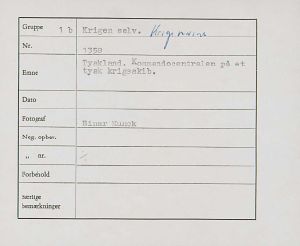 Gruppe 1 b Krigen selv. Krigsmarine
Nr. 1359
Emne Tyskland. Kommandocentralen på et
tysk krigsskib.
Dato
Fotograf Einar Munck
Neg. opbev.
„ nr. ./.
Forbehold
Særlige
bemærkninger